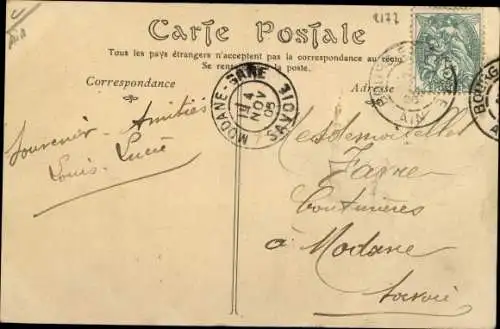 2172
Carte Postale
Tous les pays étrangers n'acceptent pas la correspondance au recto.
Se renseigner à la poste.
Correspondance
Adresse
MODANE-GARE
4
NOV
05
SAVOIE
AIN
Souvenir - Amitiés
Louis. Lucie
Mesdemoiselles
Favre
Couturières
à Modane
Savoie